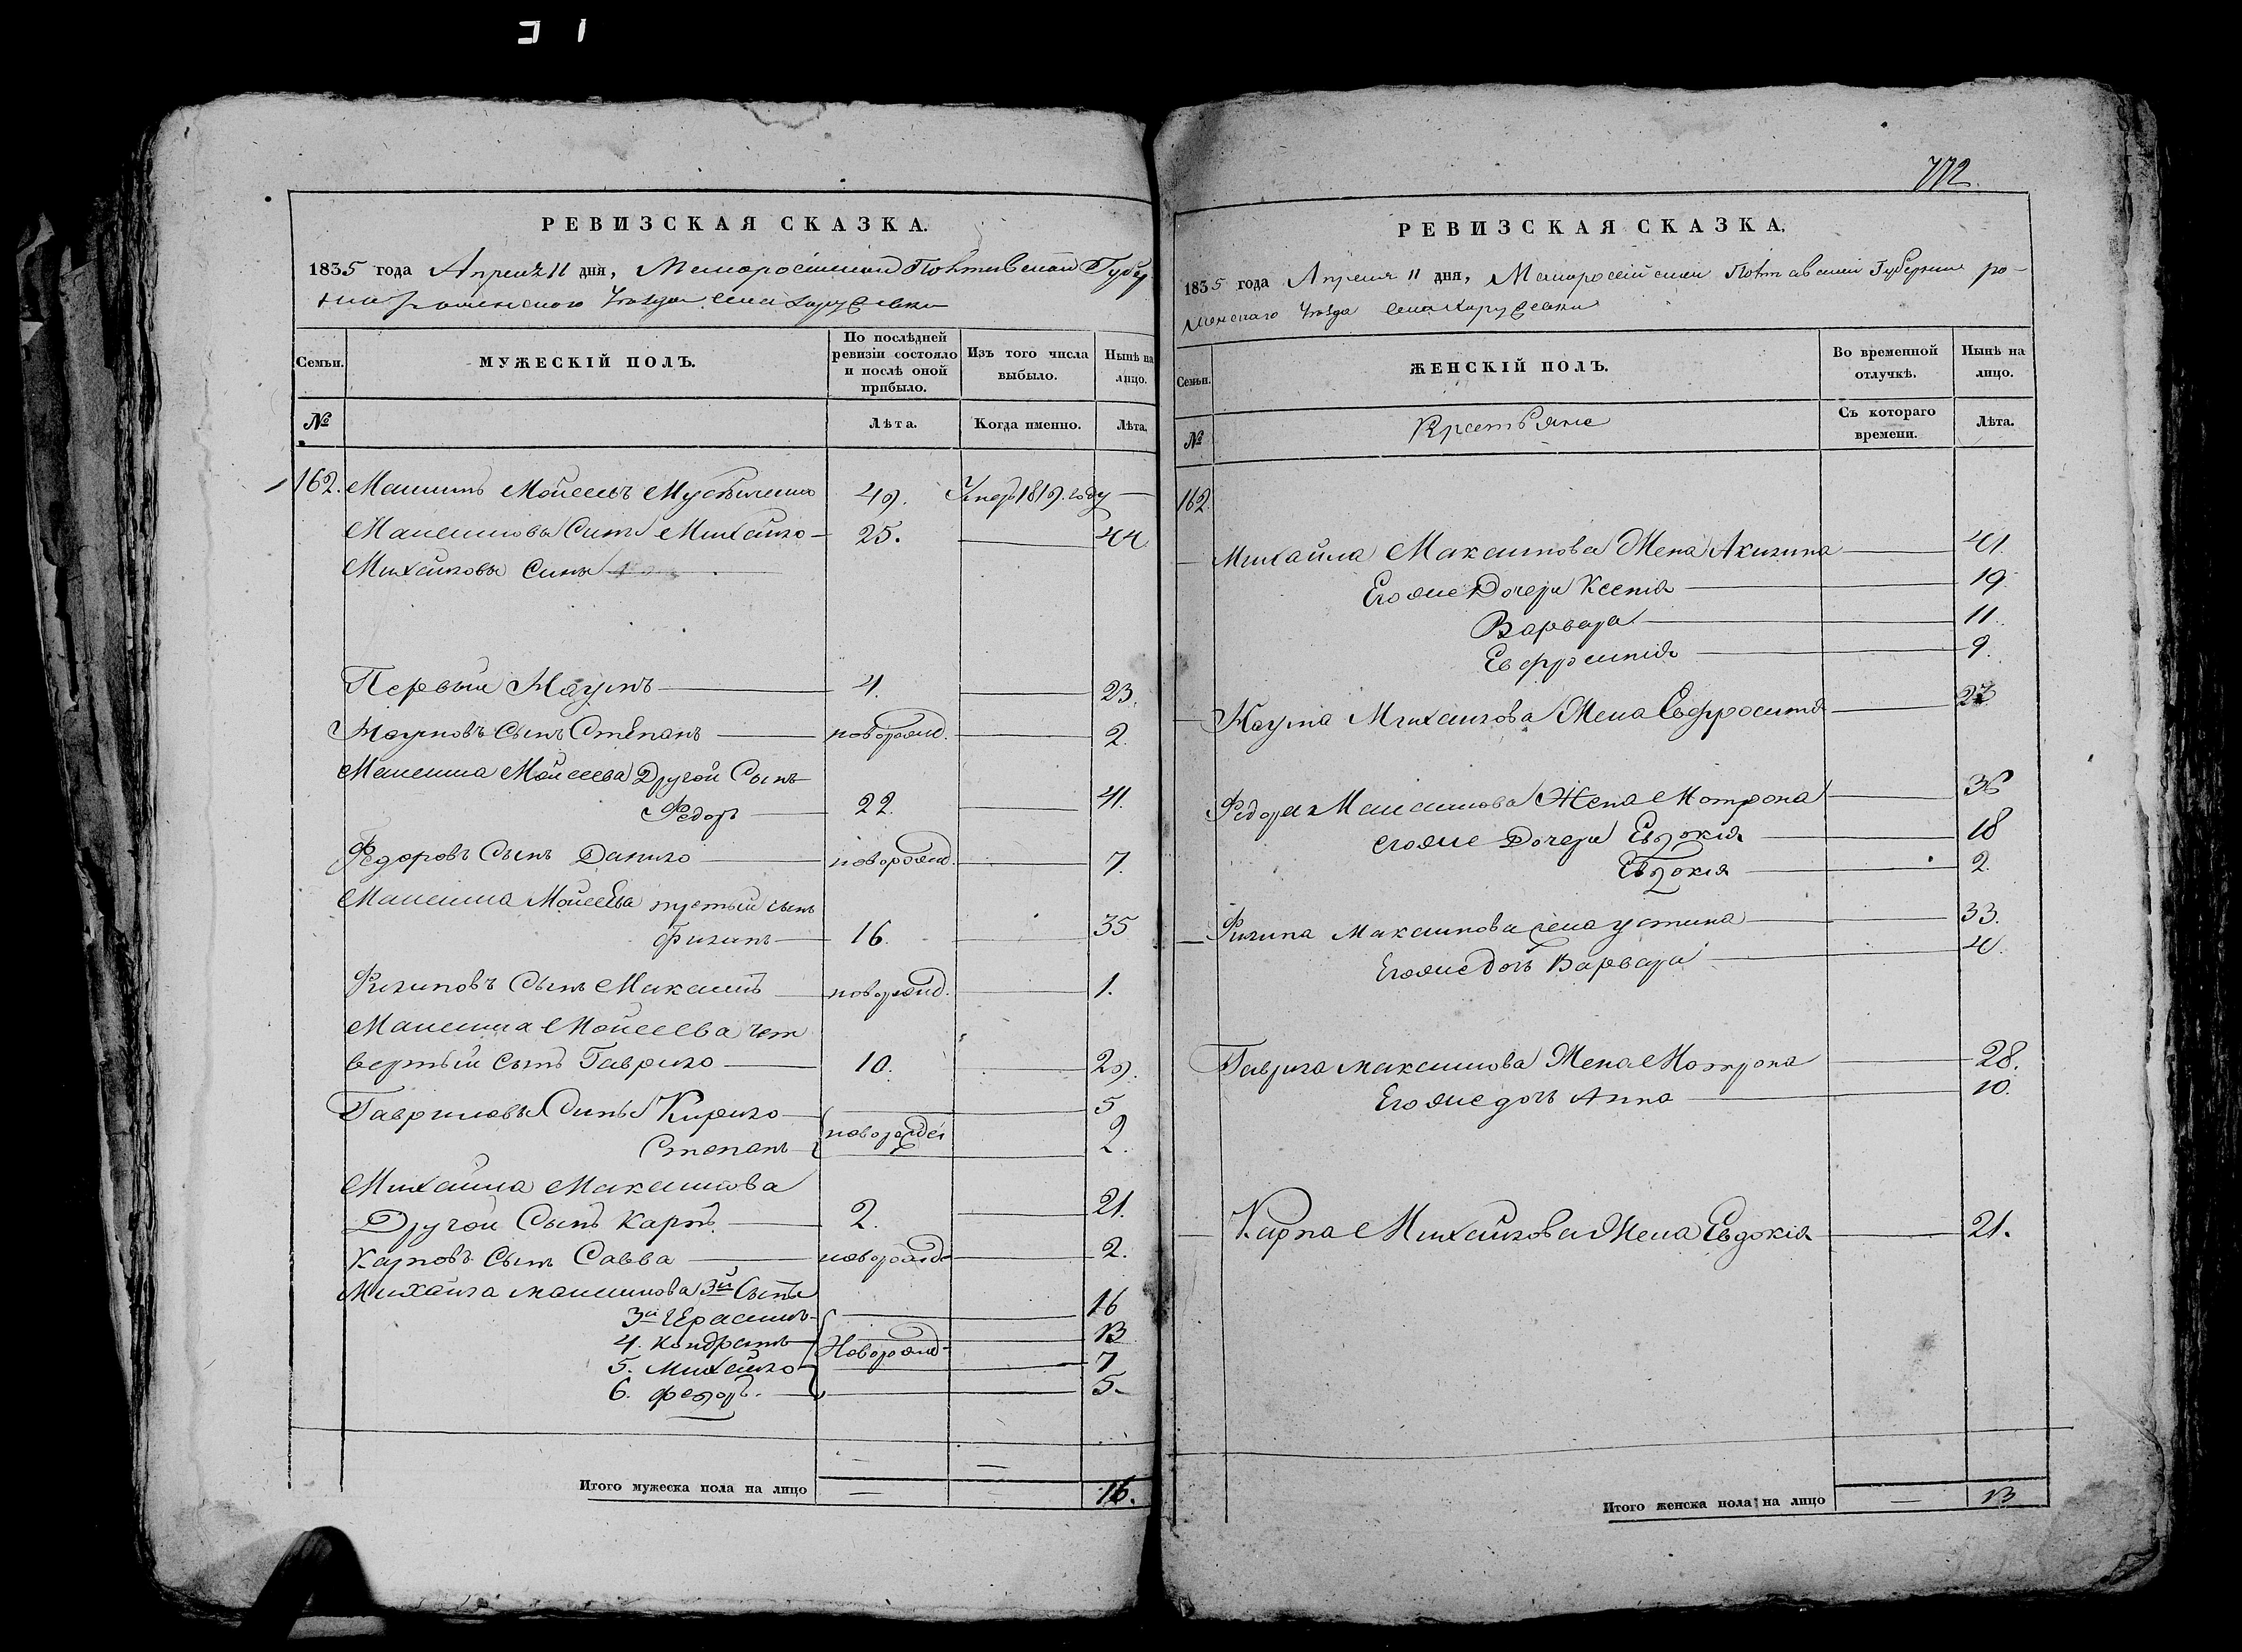 РЕВИЗСКАЯ СКАЗКА.
1835 года Апреля 11 дня, Малоросійской Полтавской Губер
ніи роменского уезда села
Семьи.
МУЖЕСКІЙ ПОЛЪ.
По послѣдней ревизіи состояло и послѣ оной прибыло.
Изъ того числа выбыло.
Нынѣ на лицо.
№
Лѣта.
Когда именно.
Лѣта.
162. Максимъ Мойсеевъ 49. Умеръ 1819. году
Максимовы Сины Михайло 25. 44
Михайловы Сины
Первый Наумъ 4. 23.
Наумовъ Сынъ Степанъ новорожд. 2.
Максима Мойсеева Другой Сынъ
Федоръ 22. 41.
Федоровъ Сынъ Данило новорожд. 7.
Максима Мойсеева третый сынъ
Филипъ 16. 35
Филиповъ Сынъ Максимъ новорожд. 1.
Максима Мойсеева чет
вертый Сынъ Гаврило 10. 29.
Гавриловы Сины Кирило 5
Степанъ новорожден 2.
Михайла Максимова
Другой Сынъ Карпъ 2. 21.
Карповъ Сынъ Савва новорожд. 2.
Михайла максимова 3й Сынъ
3й Герасимъ 16
4. Кондратъ Новорожд. 13
5. Михайло 7
6. федоръ. 5.
Итого мужеска пола на лицо 16.
772.
РЕВИЗСКАЯ СКАЗКА.
1835 года Апреля 11 дня, Малоросейской Полтавской Губерніи ро-
менскаго уезда села
Семьи.
ЖЕНСКІЙ ПОЛЪ.
Во временной отлучкѣ.
Нынѣ на лицо.
№
Крестьяне
Съ котораго времени.
Лѣта.
162.
Михайла Максимова Жена Акилина 41.
Егоже Дочери Ксенія 19.
Варвара 11.
Евфросинія 9.
Наума Михайлова Жена Евфросинія 23
Федора Максимова Жена Мотрона
егоже Дочери Евдокія 18
Евдокія 2.
Филипа Максимова жена устина 33.
Егоже дочь Варвара 4.
Гаврила максимова Жена Мотрона 28.
Егоже дочь Анна 10.
Карпа Михайлова Жена Евдокія 21.
Итого женска пола на лицо 13